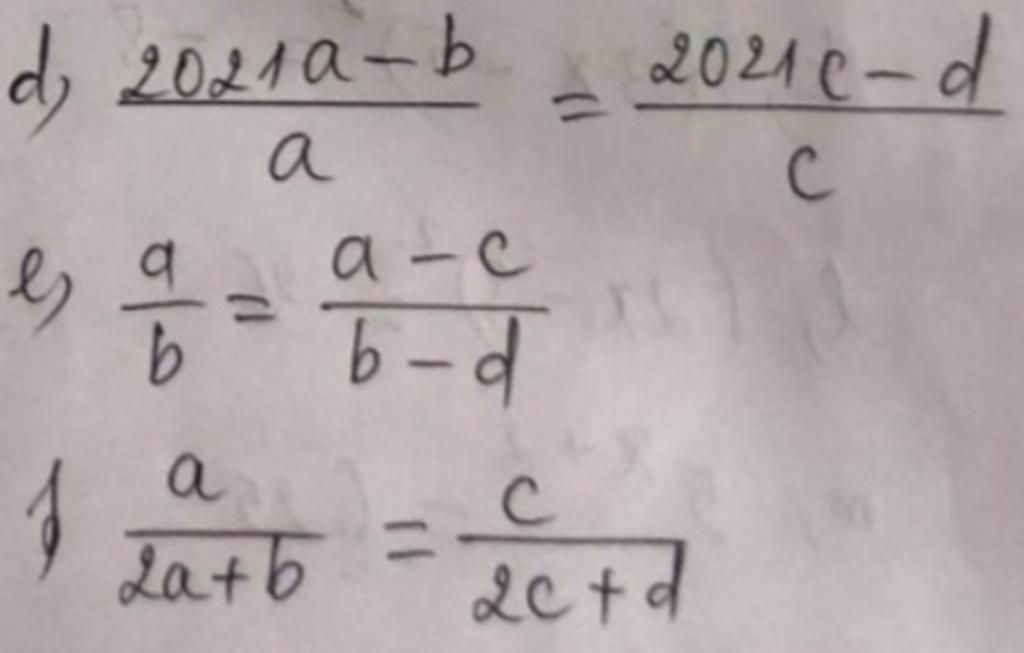 d, \frac{2021a-b}{a} = \frac{2021c-d}{c}
e, \frac{a}{b} = \frac{a-c}{b-d}
f \frac{a}{2a+b} = \frac{c}{2c+d}